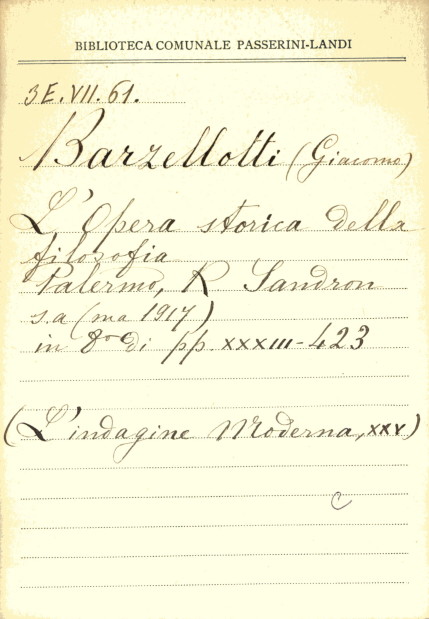 BIBLIOTECA COMUNALE PASSERINI-LANDI
3E.VII.61.
Barzellotti (Giacomo)
L'Opera storica della
filosofia
Palermo, R Sandron
s.a (ma 1917)
in 8° di pp. XXXIII-423
(L'indagine Moderna, XXV)
C